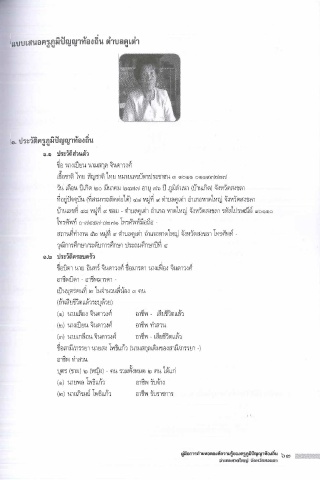 แบบเสนอครูภูมิปัญญาท้องถิ่น ตำบลคูเต่า
๑. ประวัติครูภูมิปัญญาท้องถิ่น
๑.๑ ประวัติส่วนตัว
ชื่อ นางเบียน นามสกุล จินดาวงศ์
เชื้อชาติ ไทย สัญชาติ ไทย หมายเลขบัตรประชาชน
วัน เดือน ปีเกิด ๒๐ มีนาคม อายุ ปี ภูมิลำเนา (บ้านเกิด) จังหวัดสงขลา
ที่อยู่ปัจจุบัน (ที่สามารถติดต่อได้) หมู่ที่ ตำบลคูเต่า อำเภอหาดใหญ่ จังหวัดสงขลา
บ้านเลขที่ หมู่ที่ ซอย - ตำบลคูเต่า อำเภอ หาดใหญ่ จังหวัดสงขลา รหัสไปรษณีย์ ๙๐๑๑๐
โทรศัพท์ โทรศัพท์มือถือ -
สถานที่ทำงาน หมู่ที่ ตำบลคูเต่า อำเภอหาดใหญ่ จังหวัดสงขลา โทรศัพท์ -
วุฒิการศึกษา/ระดับการศึกษา ประถมศึกษาปีที่ ๔
๑.๒ ประวัติครอบครัว
ชื่อบิดา นาย อินทร์ จินดาวงศ์ ชื่อมารดา นางเฟื่อง จินดาวงศ์
อาชีพบิดา - อาชีพมารดา -
เป็นบุตรคนที่ ๒ ในจำนวนพี่น้อง ๓ คน
(ถ้าเสียชีวิตแล้วระบุด้วย)
(๑) จินดาวงศ์ อาชีพ - เสียชีวิตแล้ว
(๒) นางเบียน จินดาวงศ์ อาชีพ ทำสวน
(๓) จินดาวงศ์ อาชีพ - เสียชีวิตแล้ว
ชื่อสามี/ภรรยา โพธิแก้ว (นามสกุลเดิมของสามี/ภรรยา -)
อาชีพ ทำสวน
บุตร (ชาย) ๒ (หญิง) - คน รวมทั้งหมด ๒ คน ได้แก่
(๑) นายพล โพธิแก้ว อาชีพ รับจ้าง
(๒) โพธิแก้ว อาชีพ รับราชการ
คู่มือการถ่ายทอดองค์ความรู้ของครูภูมิปัญญาท้องถิ่น
อำเภอหาดใหญ่ จังหวัดสงขลา